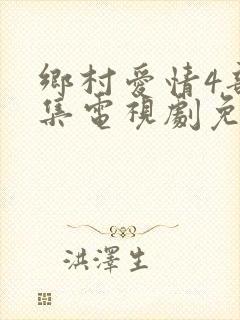 鄉村愛情4
集電視劇免
洪澤生